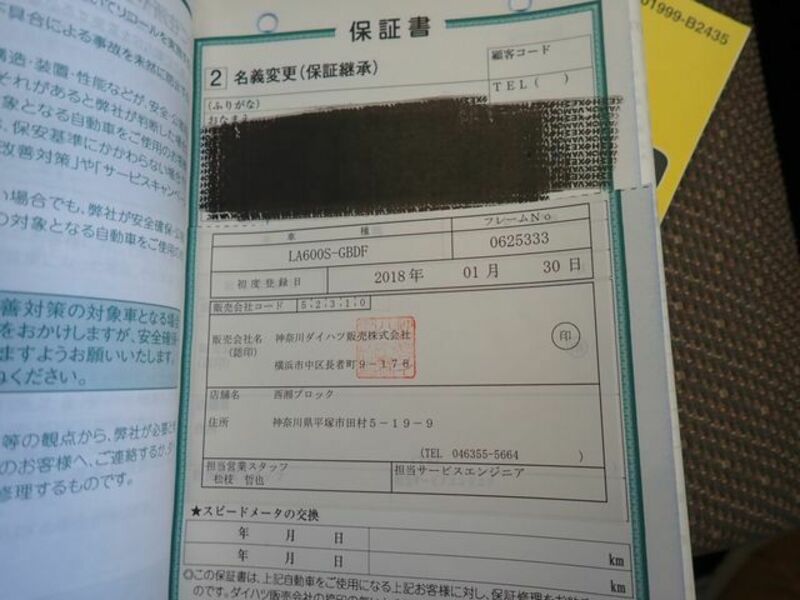 いてリコールを実施
不具合による事故を未然に防止
構造・装置・性能などが、安全・公害
それがあると弊社が判断した場合
対象となる自動車をご使用のお客様
保安基準にかかわらない
改善対策」や「サービスキャンペーン
い場合でも、弊社が安全確保・公
の対象となる自動車をご使用の
善対策の対象車となる場合
をおかけしますが、安全確
ますようお願いいたします。
ください。
等の観点から、弊社が必要と
のお客様へ、ご連絡するか、
修理するものです。
01999-B2435
保証書
2 名義変更(保証継承)
顧客コード
TEL( )
(ふりがな)
おなまえ
車種
フレームNo
LA600S-GBDF
0625333
初度登録日
2018年 01月 30日
販売会社コード 5 2 3 1 0
販売会社名 神奈川ダイハツ販売株式会社
(認印)
印
横浜市中区長者町9-178
店舗名 西湘ブロック
住所 神奈川県平塚市田村5-19-9
(TEL 046355-5664 )
担当営業スタッフ
松枝 哲也
担当サービスエンジニア
★スピードメータの交換
年 月 日
km
年 月 日
km
◎この保証書は、上記自動車をご使用になる上記お客様に対し、保証修理を
のです。ダイハツ販売会社の